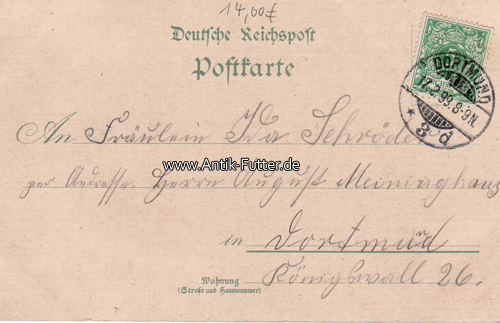 14,00€
Deutsche Reichspost
Postkarte
DORTMUND
17.5.99.8-9N
* 3 d
An Fräulein Ida Schröder
www.Antik-Futter.de
per Adresse. Herrn August Meininghaus
in Dortmund
Königswall 26.
Wohnung
(Straße und Hausnummer)